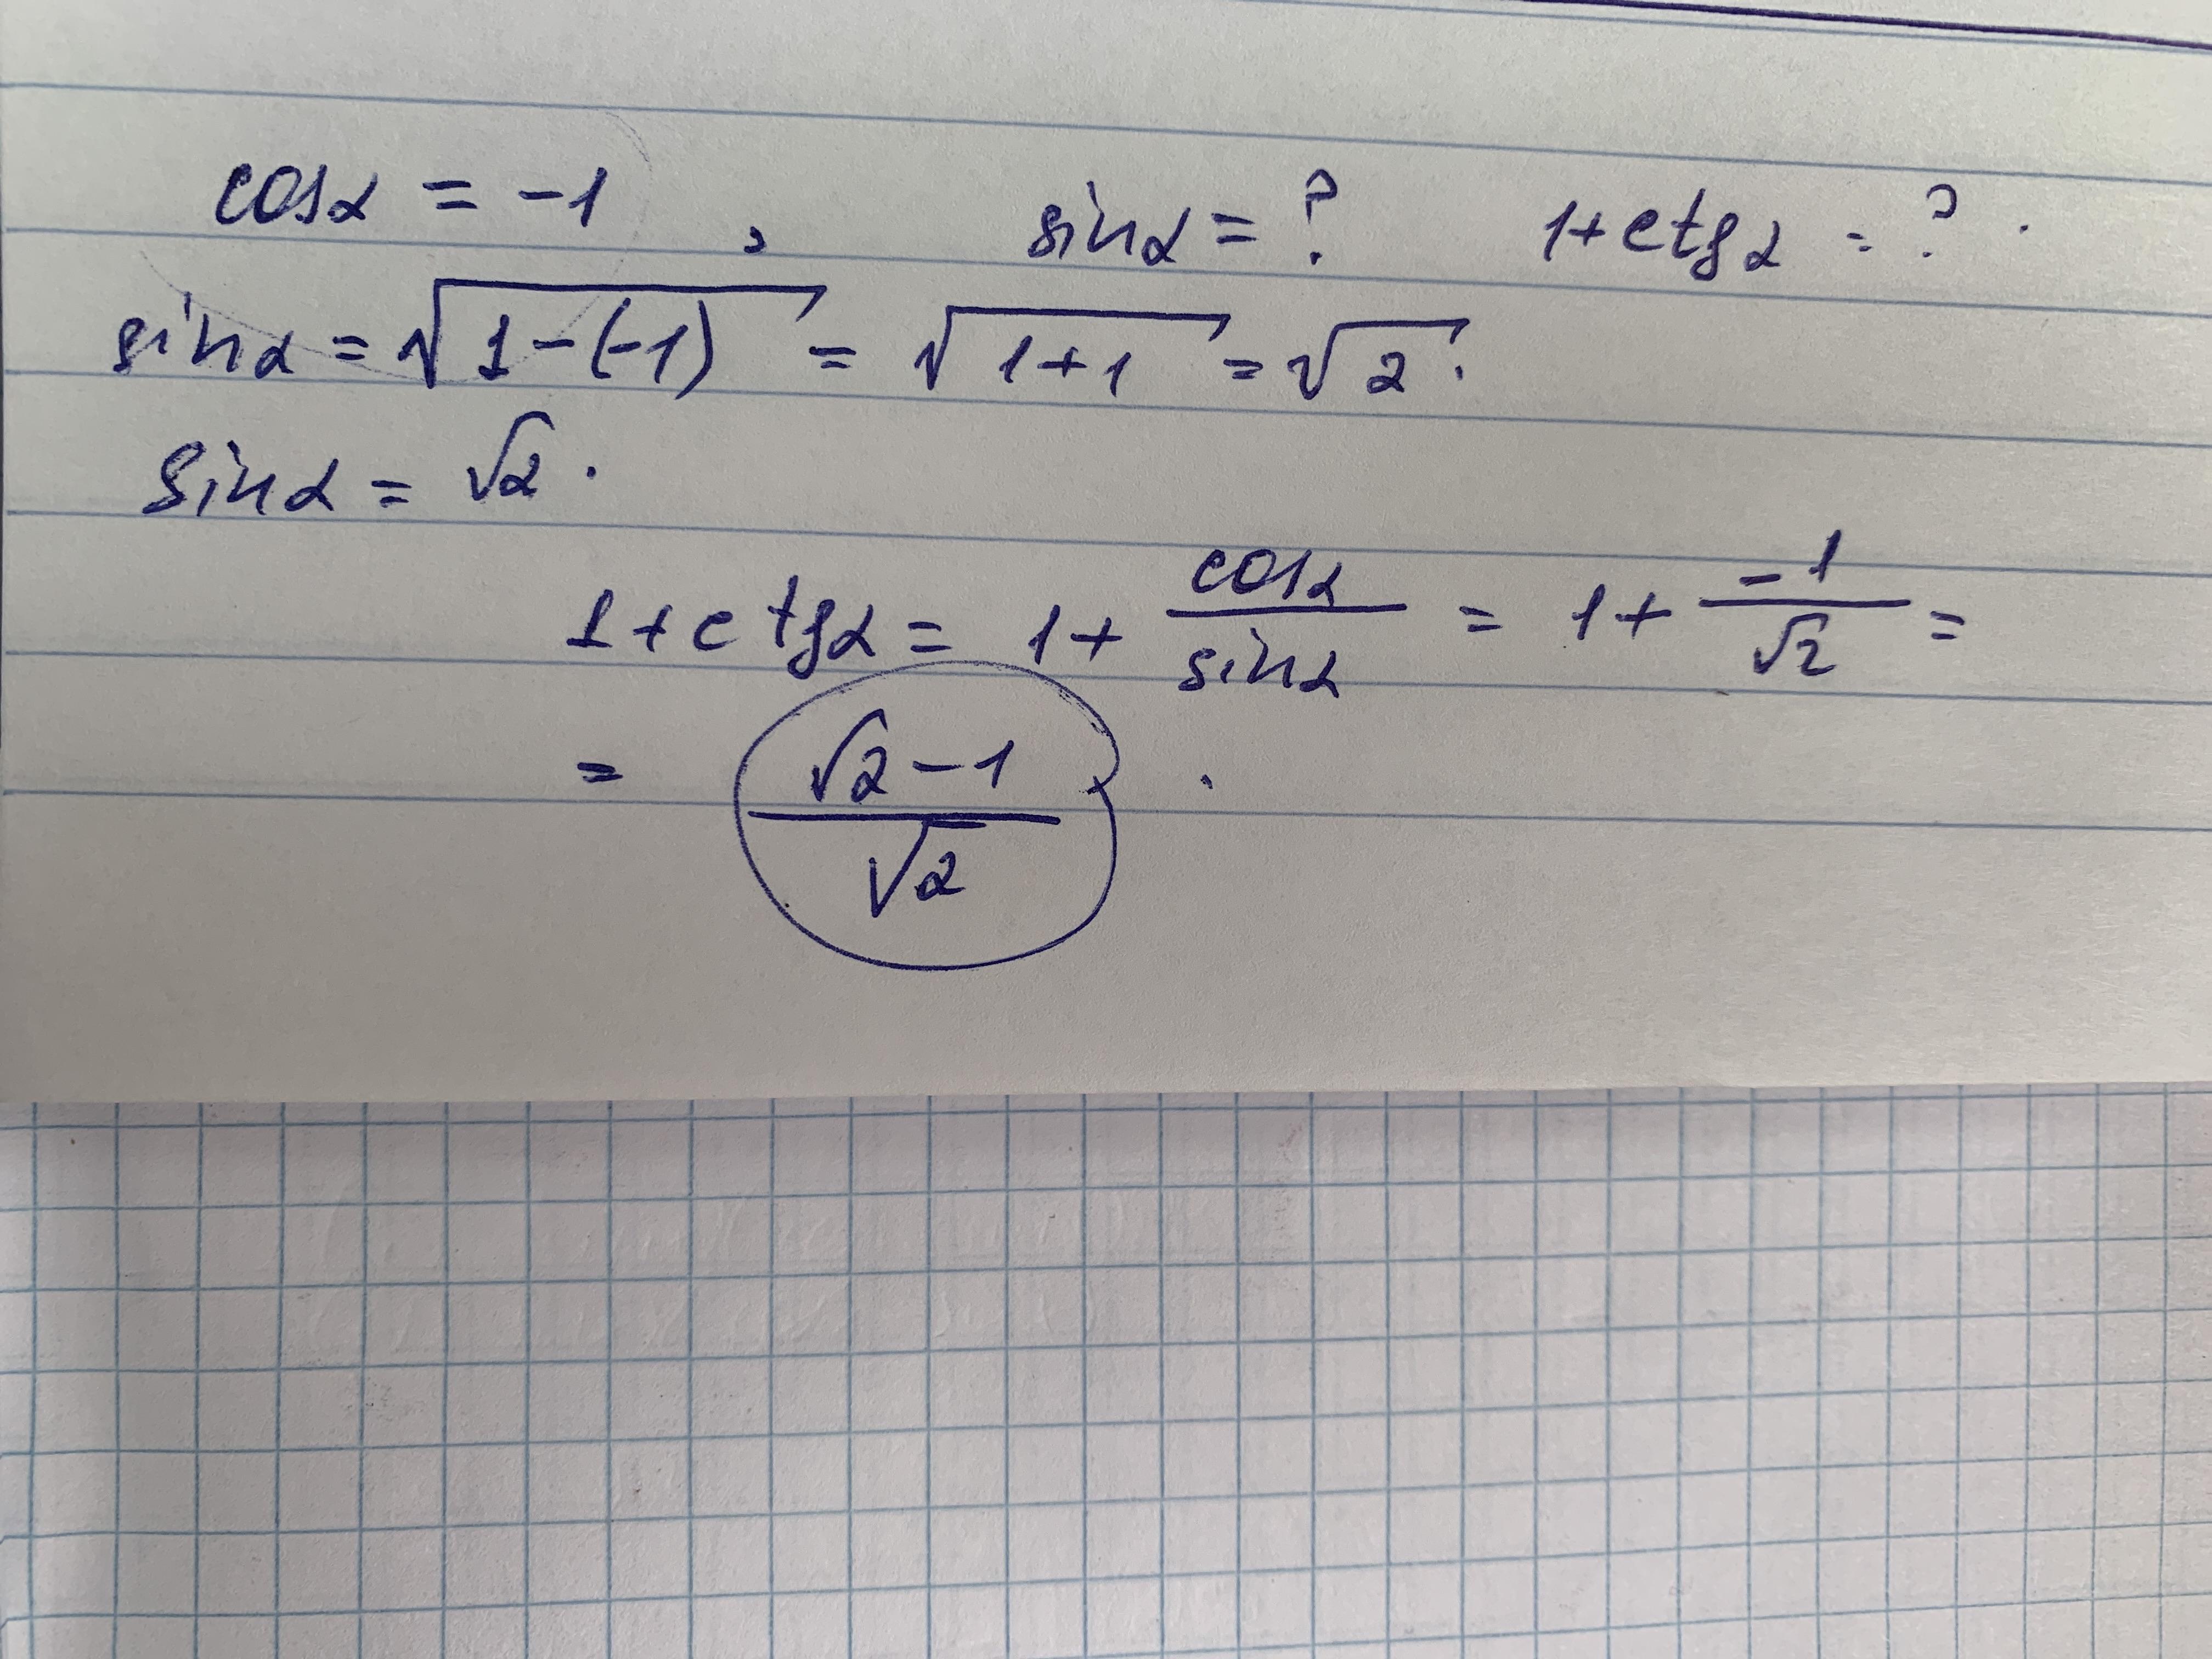 cosα = -1 , sinα = ? 1+ctgα = ? .
sinα = √(1-(-1)) = √(1+1) = √2 .
sinα = √2 .
1+ctgα = 1+ cosα/sinα = 1+ -1/√2 =
= (√2-1)/√2 .